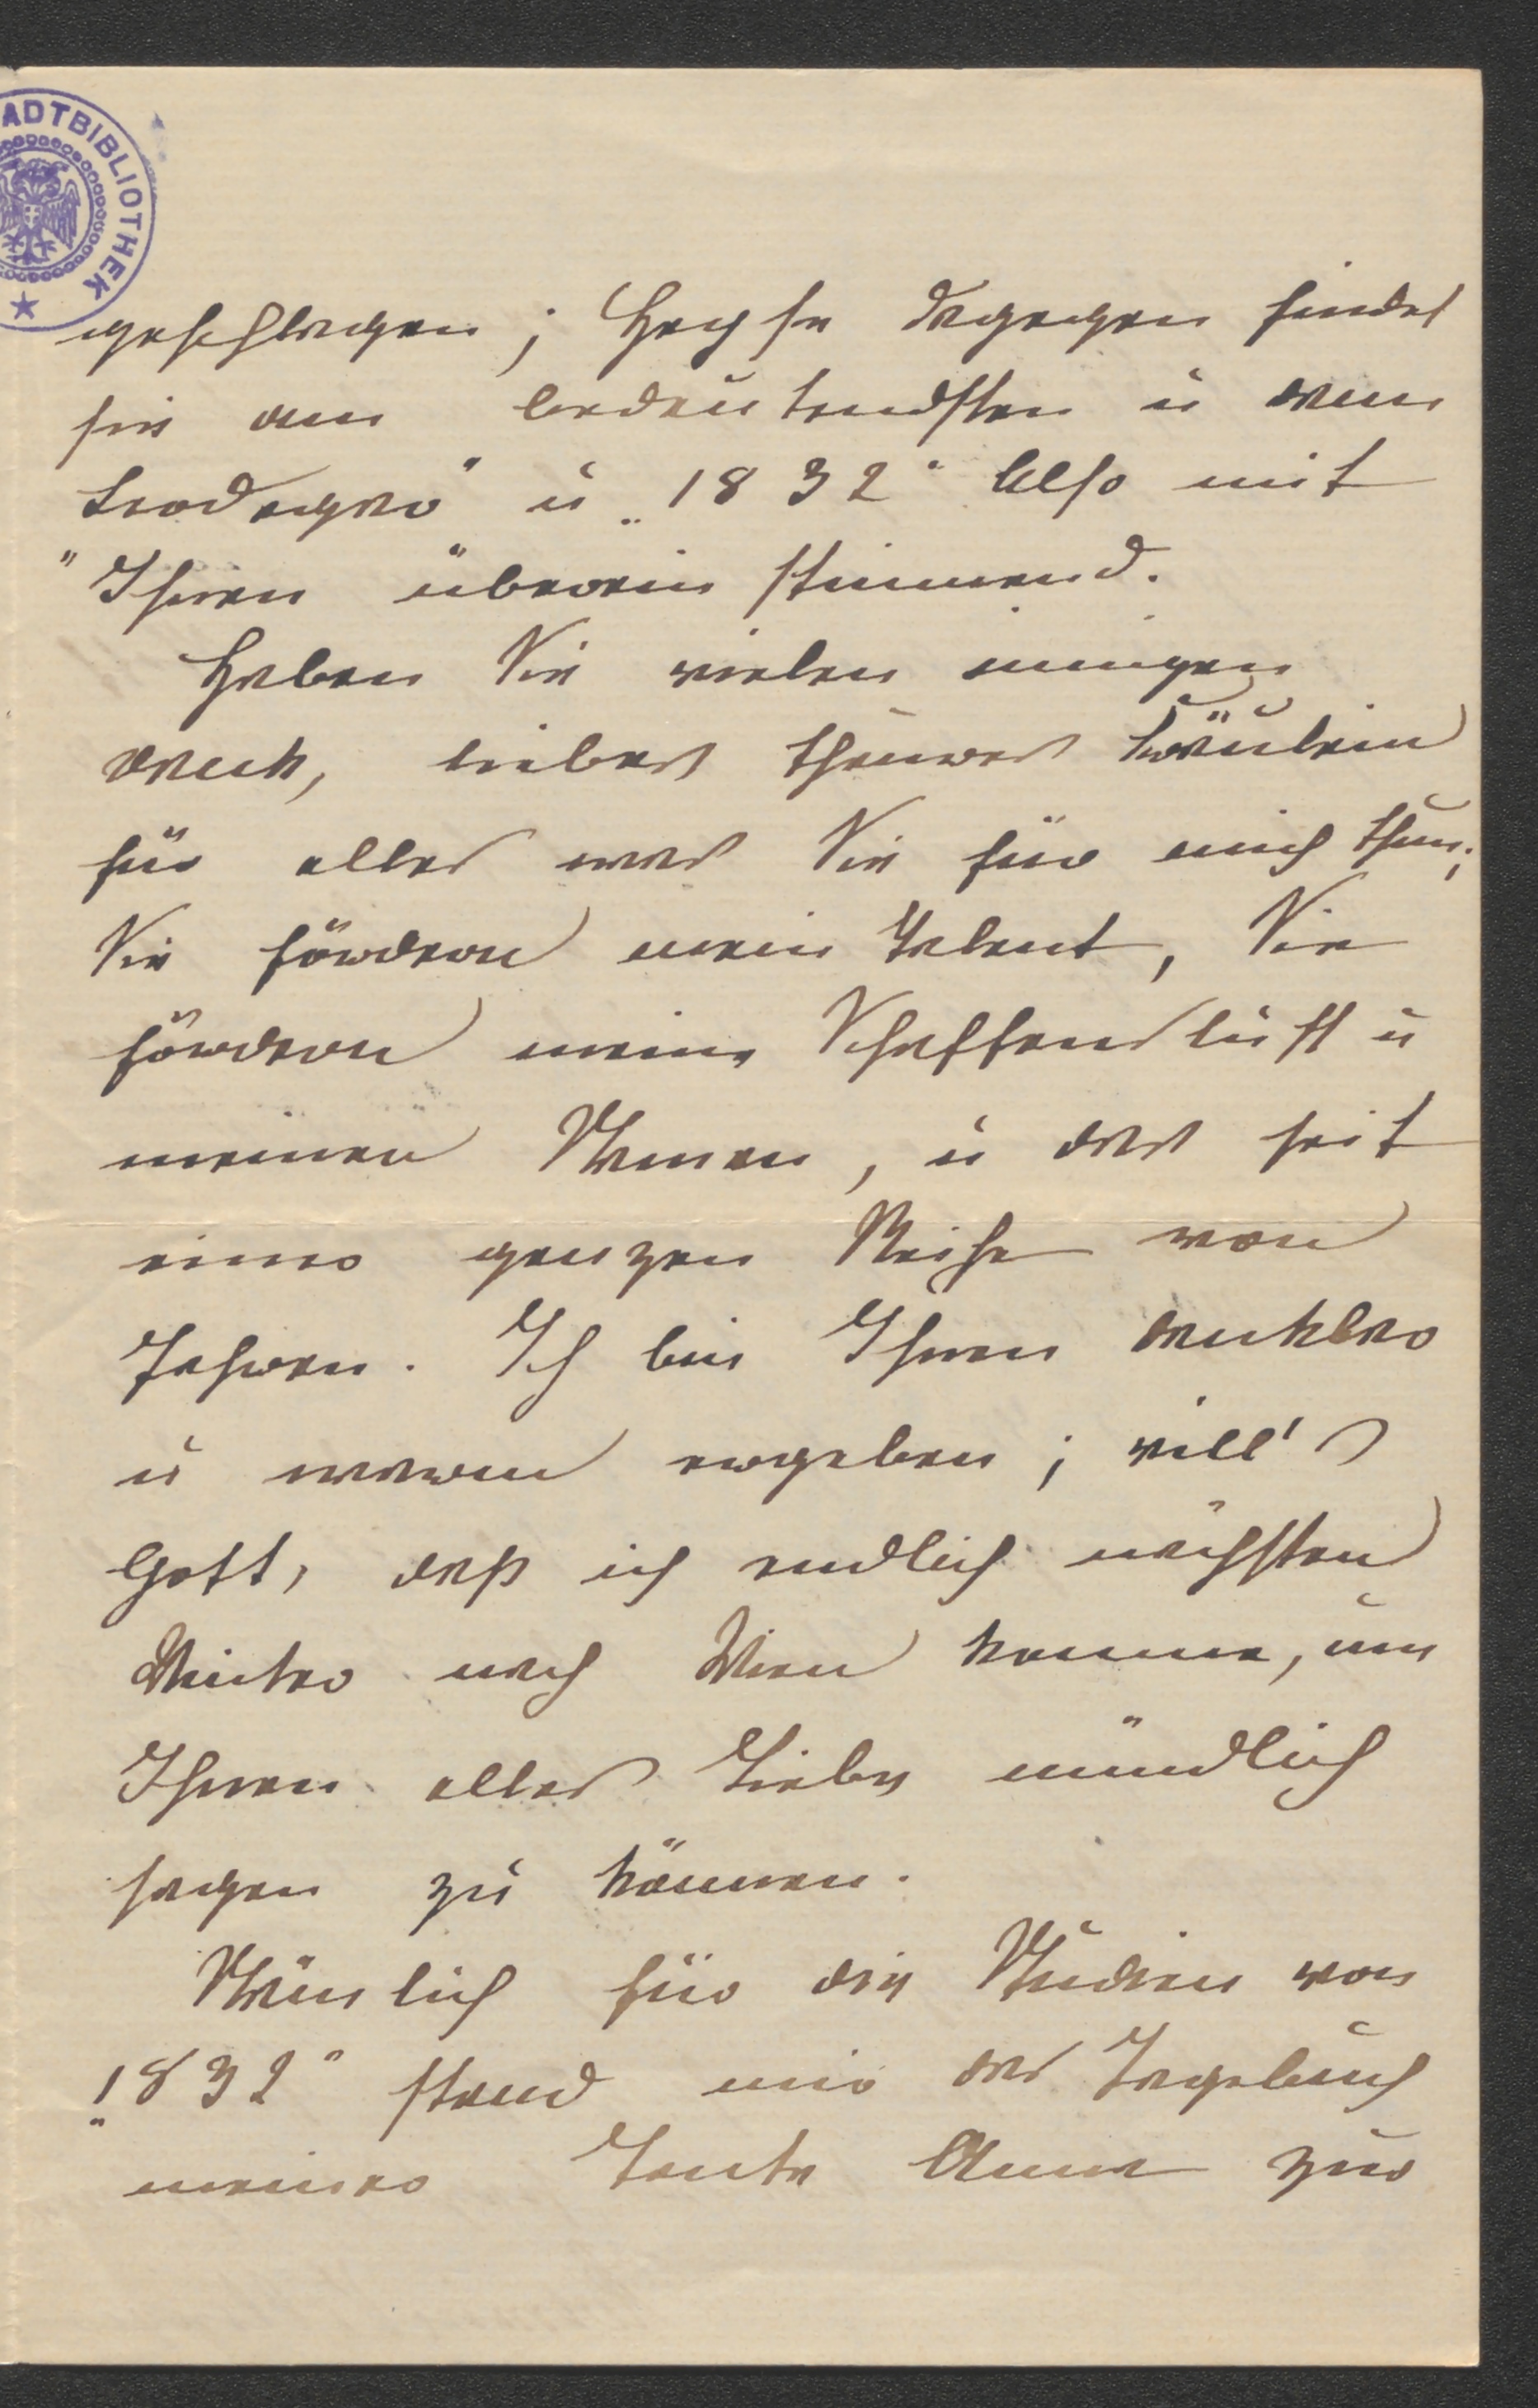 ADTBIBLIOTHEK
geschlagen; Heyse dagegen findet
sie am bedeutendsten u dann
"Leodegar" u „1832" Also mit
Ihnen übereinstimmend.
Haben Sie vielen innigen
Dank, liebes theures Fräulein
für alles was Sie für mich thun;
Sie fördern mein Talent, Sie
fördern meine Schaffenslust u
meinen Namen, u das seit
einer ganzen Reihe von
Jahren. Ich bin Ihnen dankbar
u warm ergeben; will's
Gott, daß ich endlich nächsten
Winter nach Wien komme, um
Ihnen alles Liebe mündlich
sagen zu können.
Nämlich für die Studien von
„1832" stand mir das Tagebuch
meiner Tante Anna zur